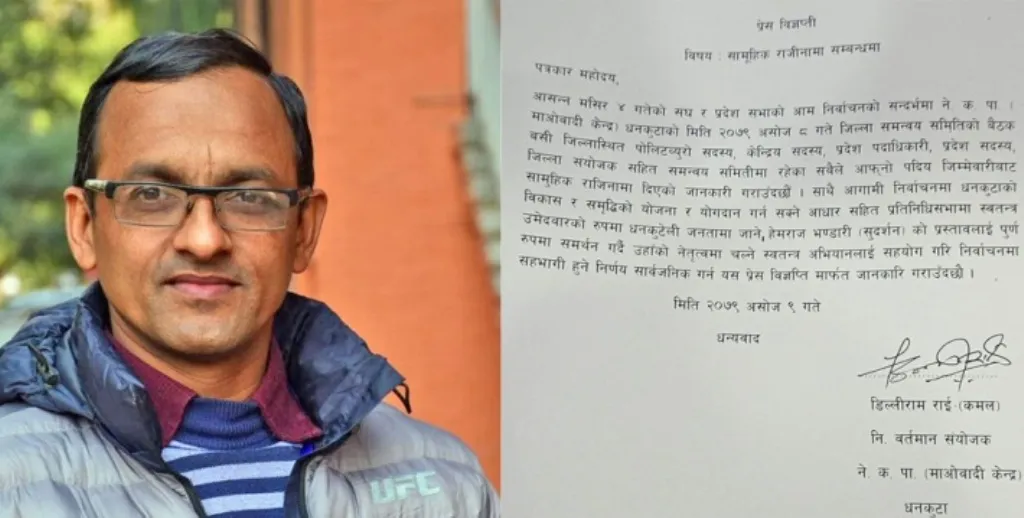 UFC
प्रेस विज्ञप्ती
विषय : सामूहिक राजीनामा सम्बन्धमा
पत्रकार महोदय,
आसन्न मंसिर ४ गतेको संघ र प्रदेश सभाको आम निर्वाचनको सन्दर्भमा ने. क. पा (
माओवादी केन्द्र) धनकुटाको मिति २०७९ असोज ८ गते जिल्ला समन्वय समितिको बैठक
बसी जिल्लास्थित पोलिटव्युरो सदस्य, केन्द्रिय सदस्य, प्रदेश पदाधिकारी, प्रदेश सदस्य,
जिल्ला संयोजक सहित समन्वय समितीमा रहेका सबैले आफ्नो पदिय जिम्मेवारीबाट
सामुहिक राजिनामा दिएको जानकारी गराउंदछौं । साथै आगामी निर्वाचनमा धनकुटाको
विकास र समृद्धिको योजना र योगदान गर्न सक्ने आधार सहित प्रतिनिधिसभामा स्वतन्त्र
उमेदवारको रुपमा धनकुटेली जनतामा जाने, हेमराज भण्डारी (सुदर्शन) को प्रस्तावलाई पुर्ण
रुपमा समर्थन गर्दै उहांको नेतृत्वमा चल्ने स्वतन्त्र अभियानलाई सहयोग गरि निर्वाचनमा
सहभागी हुने निर्णय सार्वजनिक गर्न यस प्रेस विज्ञप्ति मार्फत जानकारि गराउंदछौ ।
मिति २०७९ असोज ९ गते
धन्यवाद
डिल्लीराम राई (कमल)
नि. वर्तमान संयोजक
ने. क. पा. (माओवादी केन्द्र)
धनकुटा